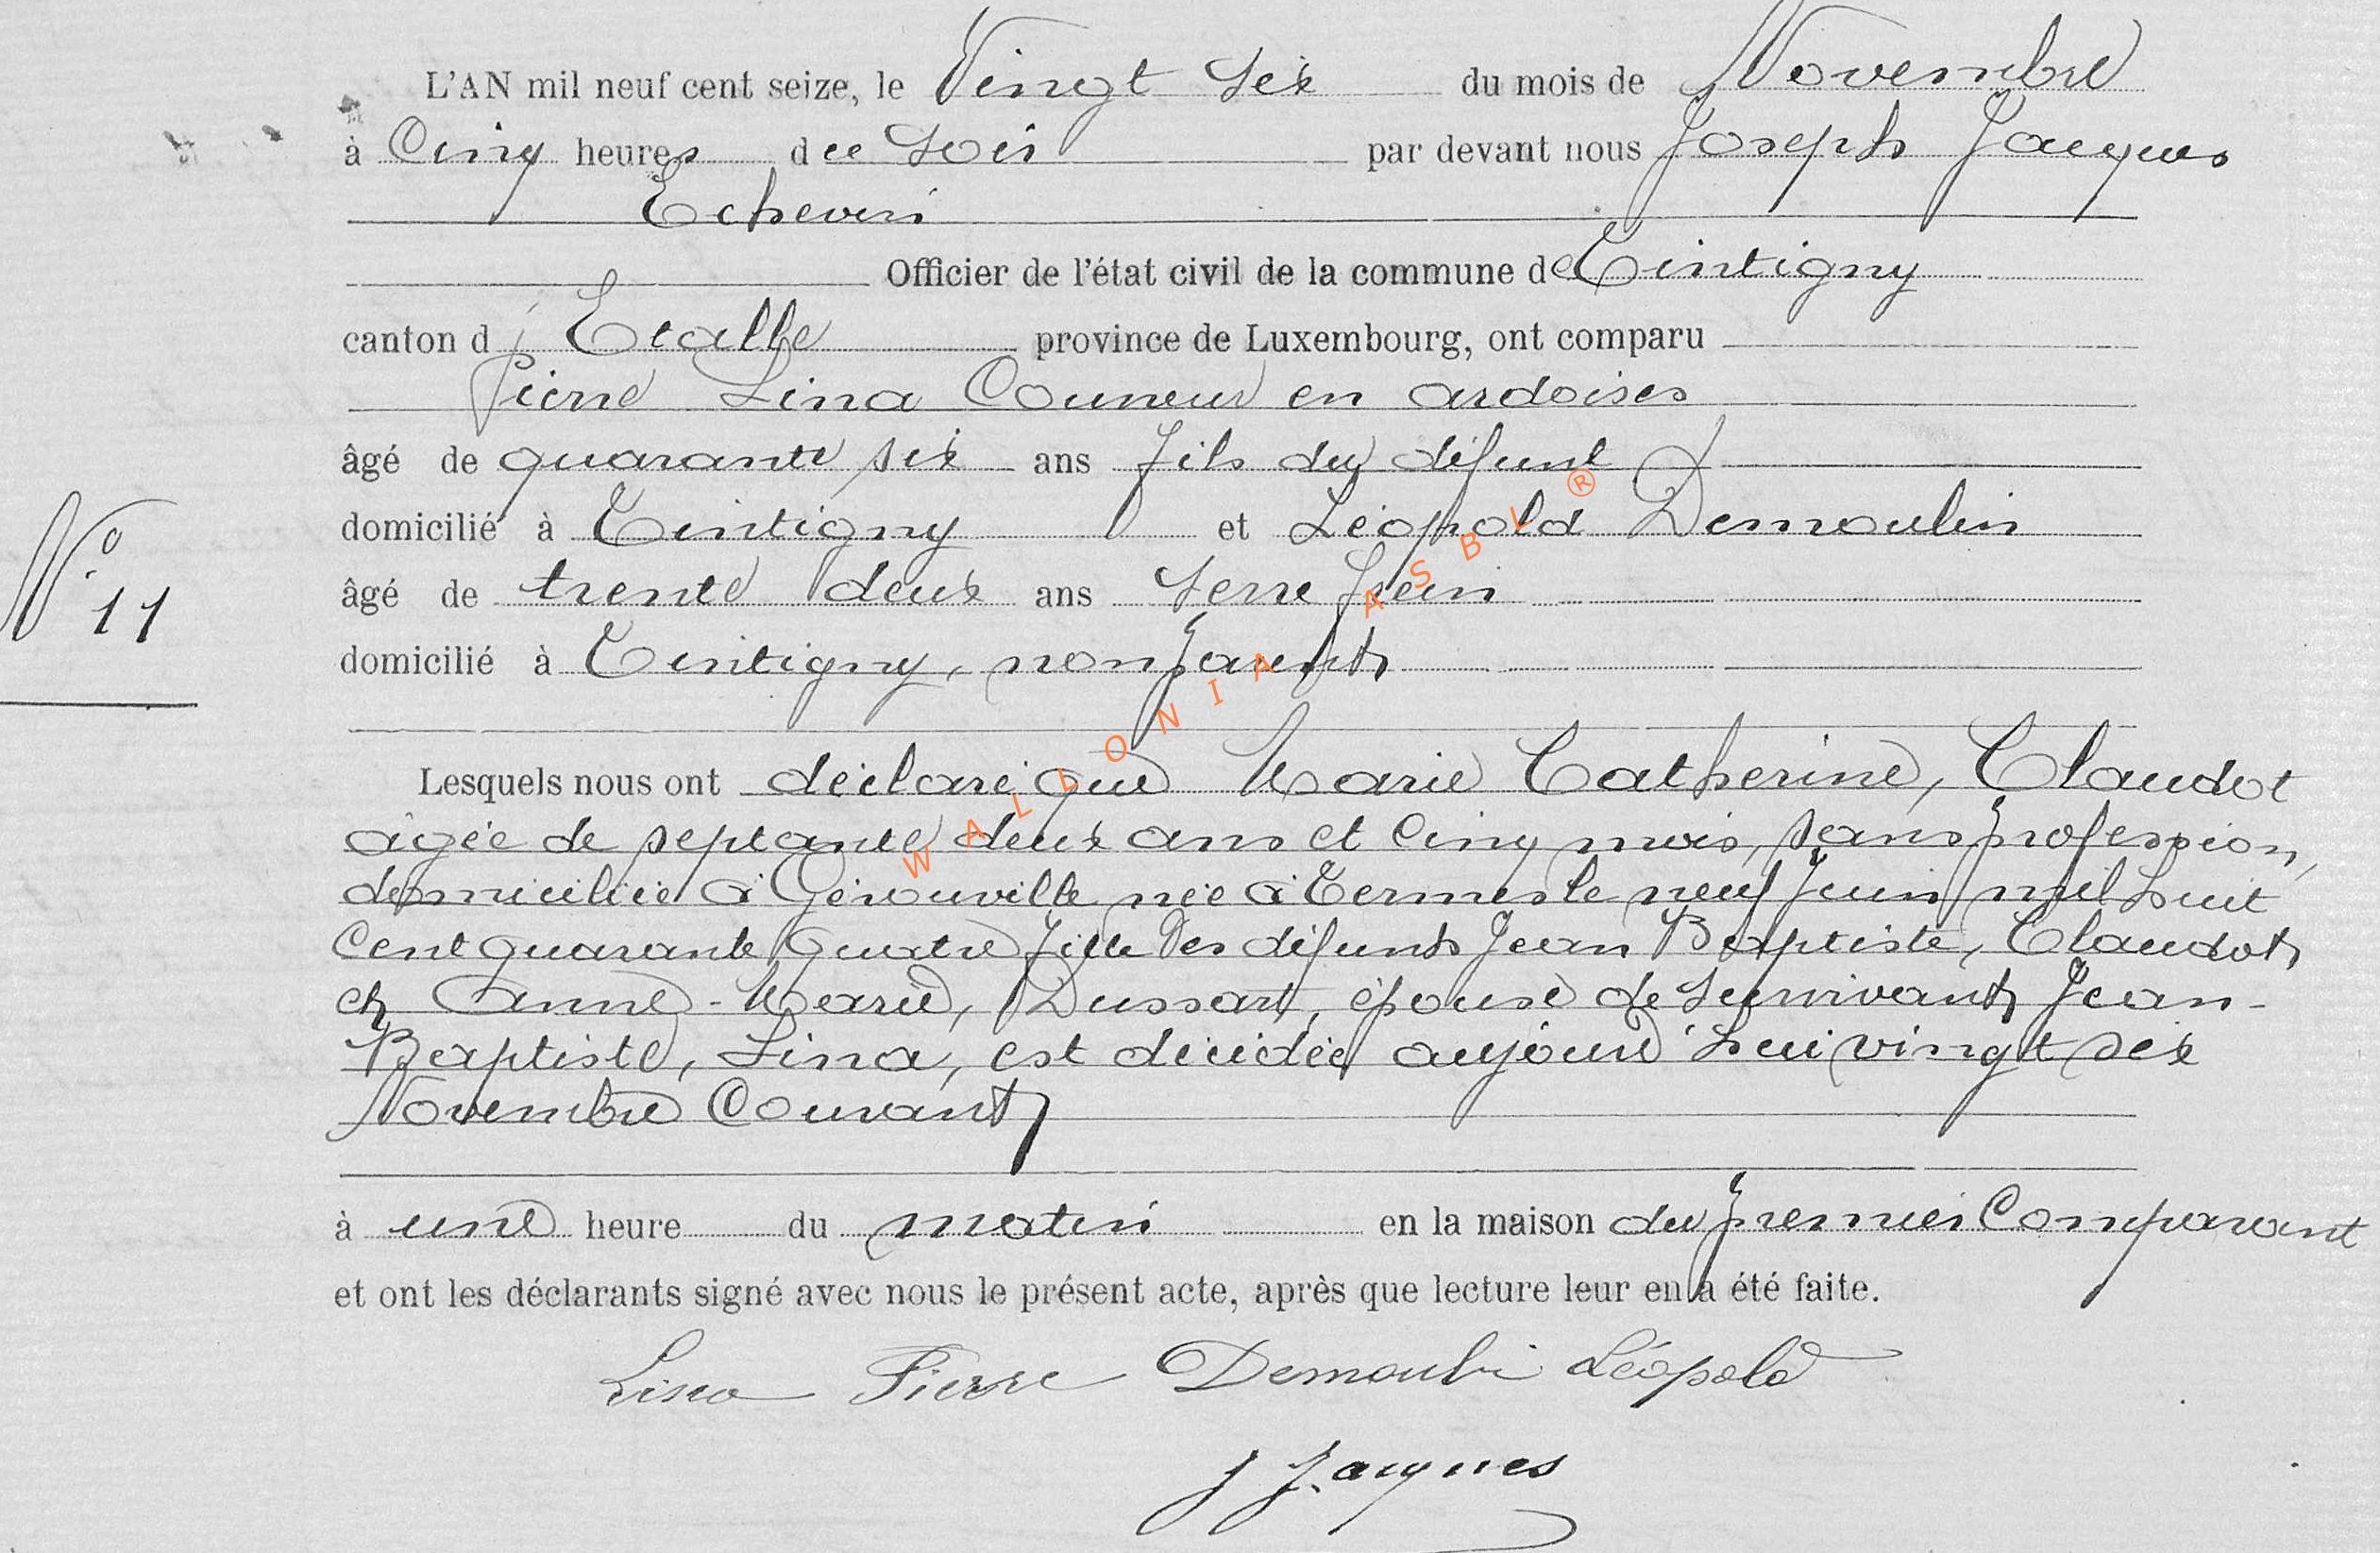 L'AN mil neuf cent seize, le Vingt six du mois de Novembre
à Cinq heures du Soir par devant nous Joseph Jacques
Echevin
Officier de l'état civil de la commune de Tintigny
canton d' Etalle province de Luxembourg, ont comparu
Pierre Lina Couvreur en ardoises
âgé de quarante six ans fils du défunt
domicilié à Tintigny et Léopold Demoulin
âgé de trente deux ans Serre frein
domicilié à Tintigny, non parents
N° 11
Lesquels nous ont déclaré que Marie Catherine, Claudot
âgée de septante deux ans et Cinq mois, sans profession,
domiciliée à Gérouville née à Termes le neuf Juin mil huit
Cent quarante Quatre fille Des défunts Jean Baptiste, Claudot
et Anne-Marie, Dussart, épouse de Survivant Jean-
Baptiste, Lina, est décédée aujourd'hui vingt six
Novembre Courant
à une heure du matin en la maison du premier Comparant
et ont les déclarants signé avec nous le présent acte, après que lecture leur en a été faite.
Lina Pierre Demoulin Léopold
J Jacques
WALLONIA ASBL ®